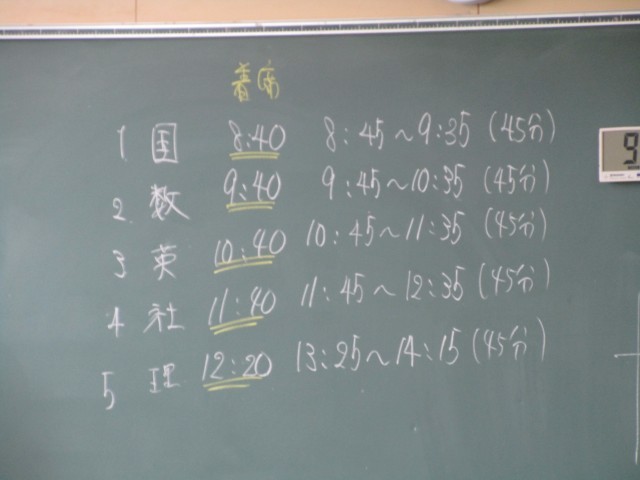 着席
1 国 8:40 8:45～9:35 (45分)
2 数 9:40 9:45～10:35 (45分)
3 英 10:40 10:45～11:35 (45分)
4 社 11:40 11:45～12:35 (45分)
5 理 12:20 13:25～14:15 (45分)
9